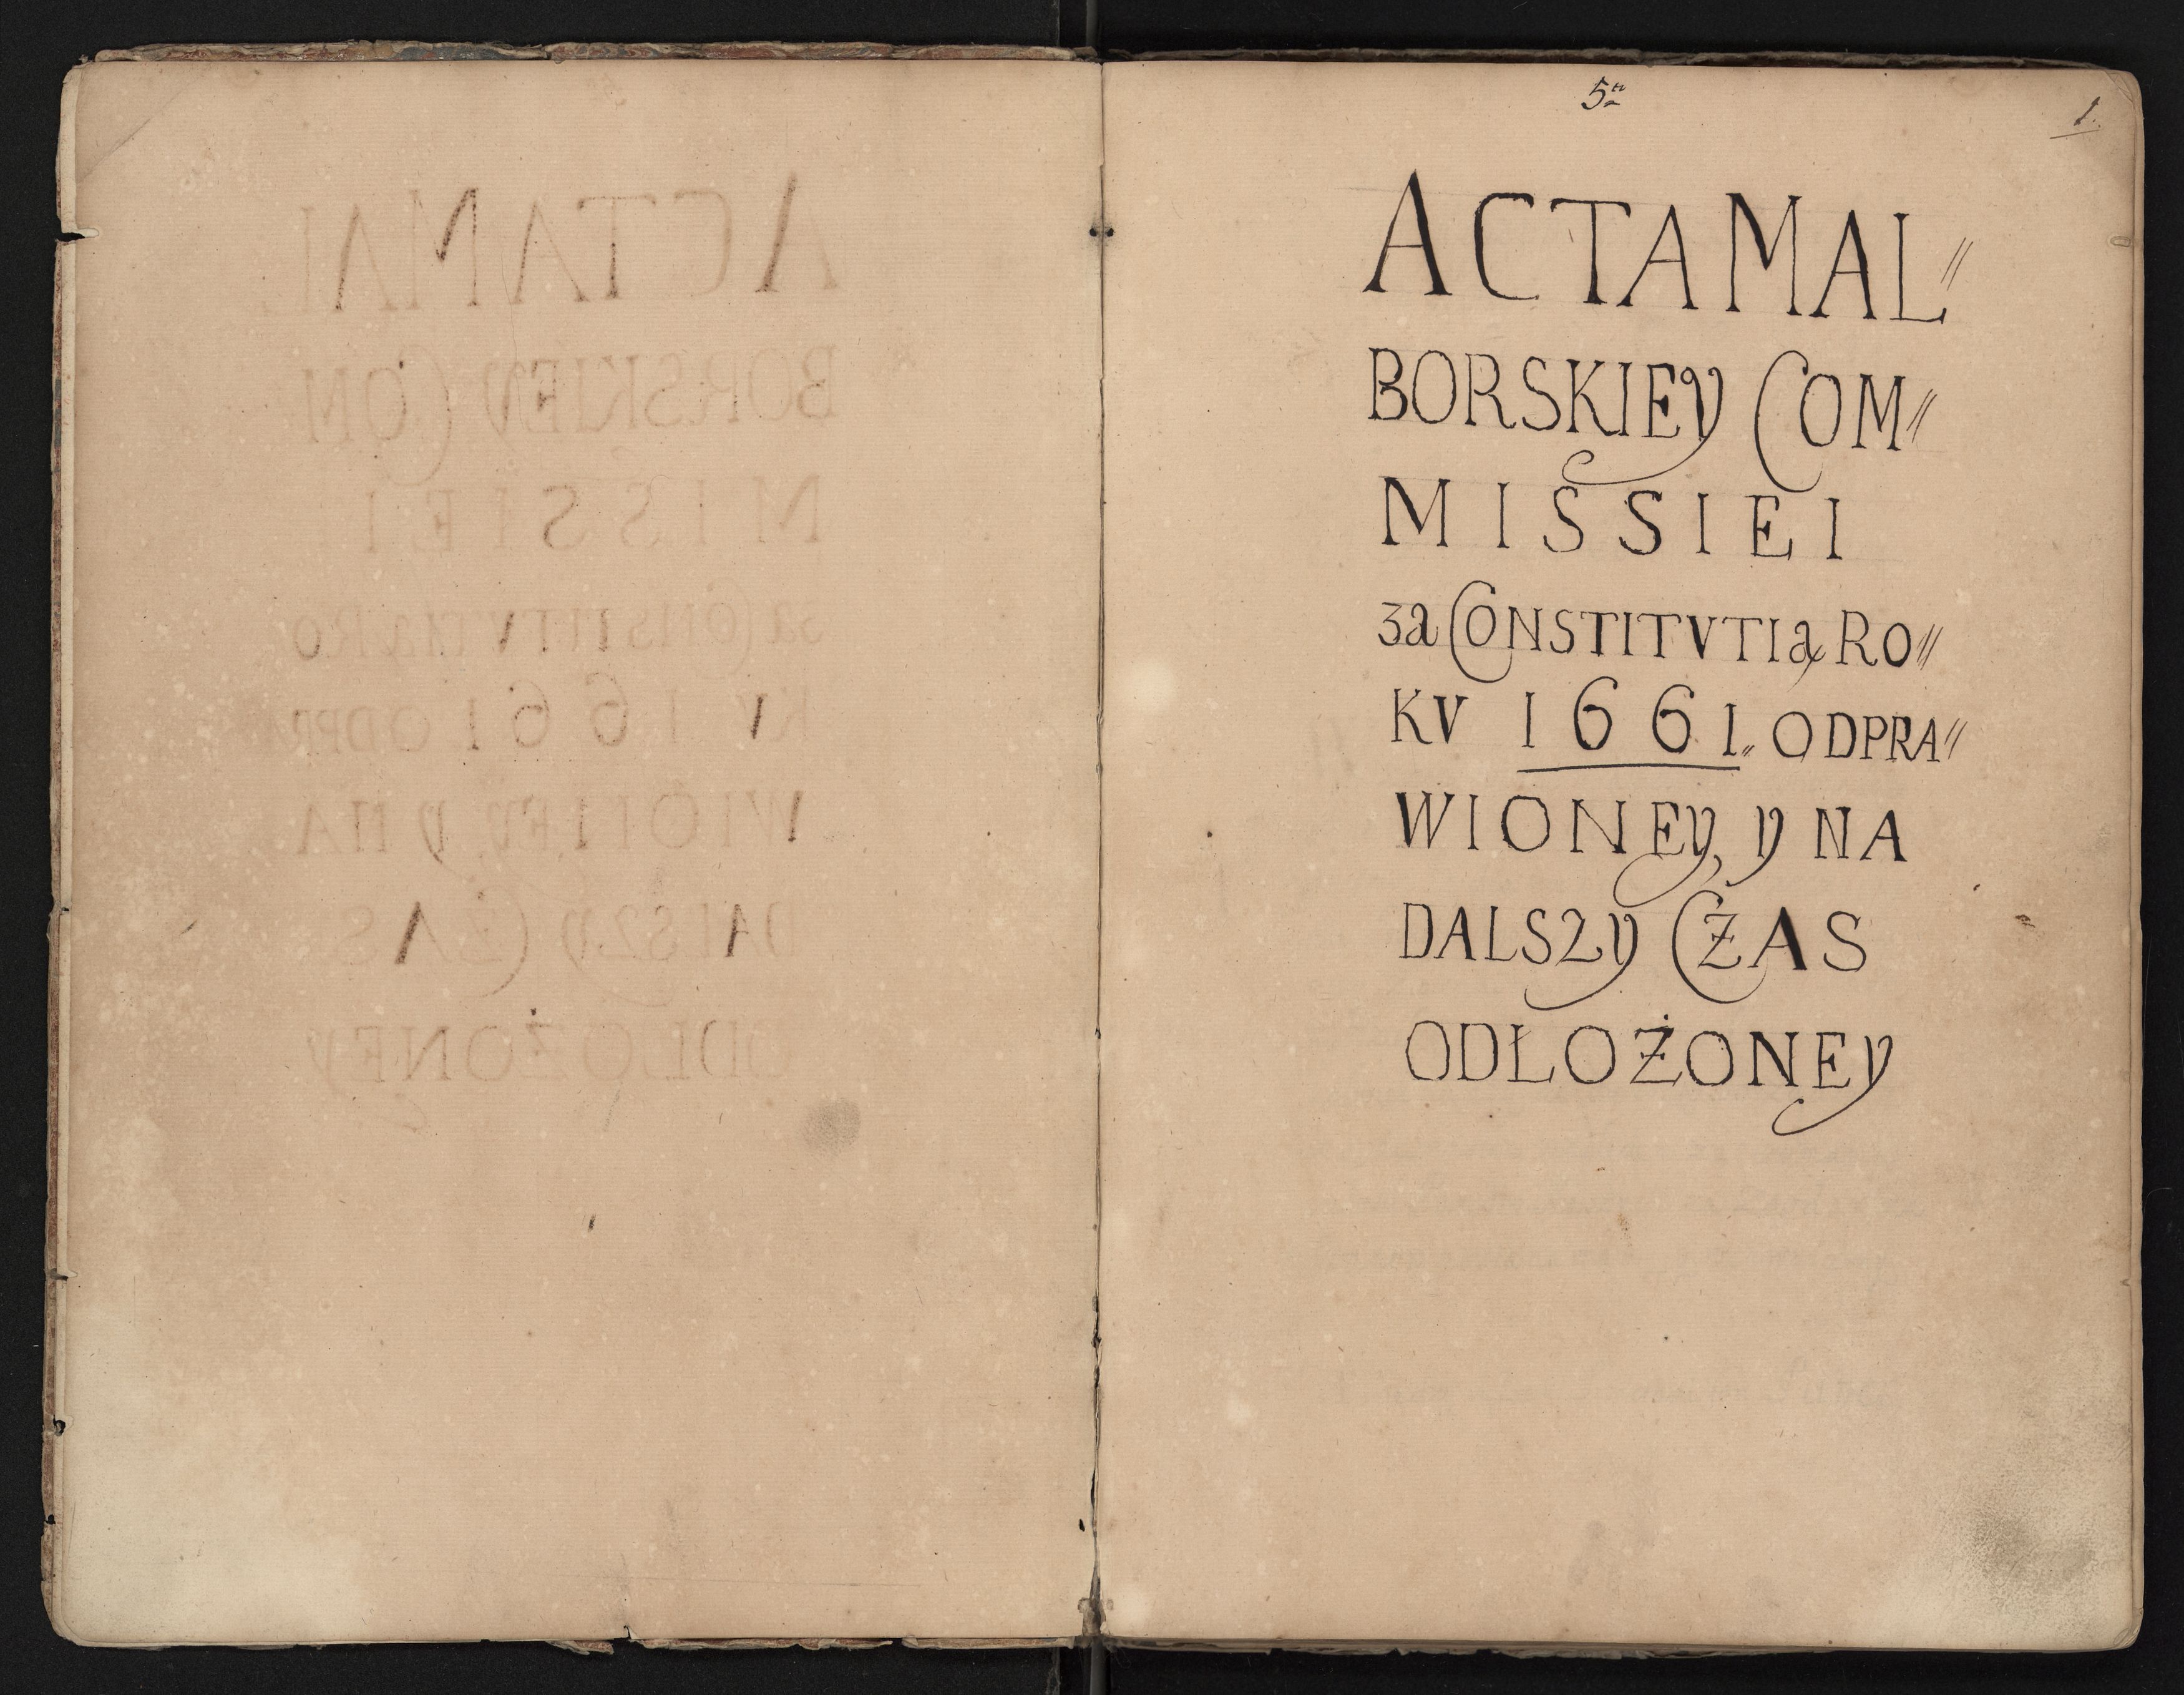 5ta
1.
ACTA MAL//
BORSKIEY COM//
MISSIEI
za CONSTITVTIą RO//
KV 1661. ODPRA//
WIONEY, Y NA
DALSZY CZAS
ODŁOŻONEY